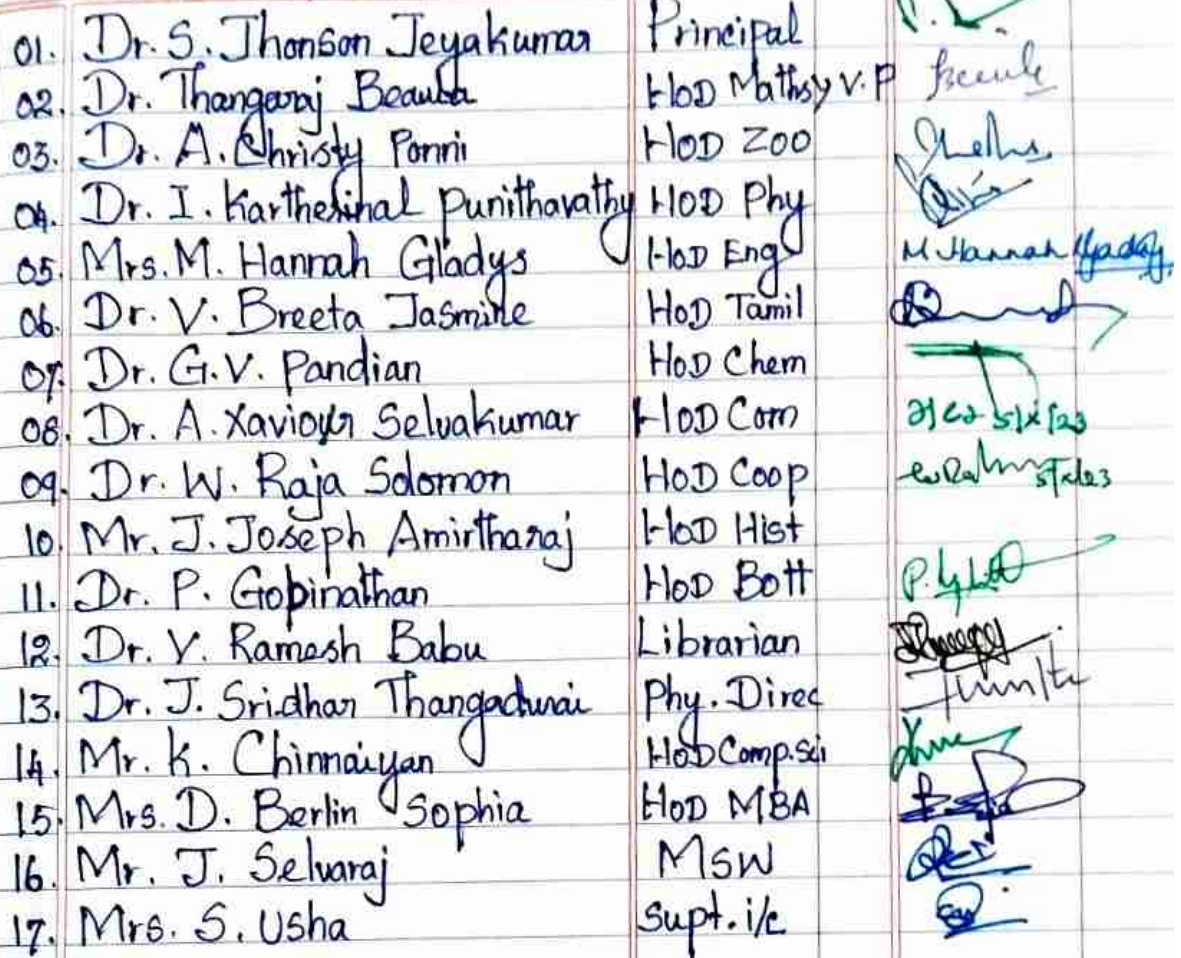 01. Dr. S. Jhonson Jeyakumar Principal
02. Dr. Thangaraj Beaula HOD Maths, V.P
03. Dr. A. Christy Ponni HOD ZOO
04. Dr. I. Karthesinal Punithavathy HOD Phy
05. Mrs. M. Hannah Gladys HOD Eng M Hannah Gladys
06. Dr. V. Breeta Jasmine HOD Tamil
07. Dr. G.V. Pandian HOD Chem
08. Dr. A. Xaviour Selvakumar HOD Com 5/X/23
09. Dr. W. Raja Solomon HOD Coop 5/X/23
10. Mr. J. Joseph Amirtharaj HOD Hist
11. Dr. P. Gopinathan HOD Bott
12. Dr. V. Ramesh Babu Librarian
13. Dr. J. Sridhar Thangadurai Phy. Direc
14. Mr. K. Chinnaiyan HOD Comp.sci
15. Mrs. D. Berlin Sophia HOD MBA
16. Mr. J. Selvaraj MSW
17. Mrs. S. Usha Supt. i/c